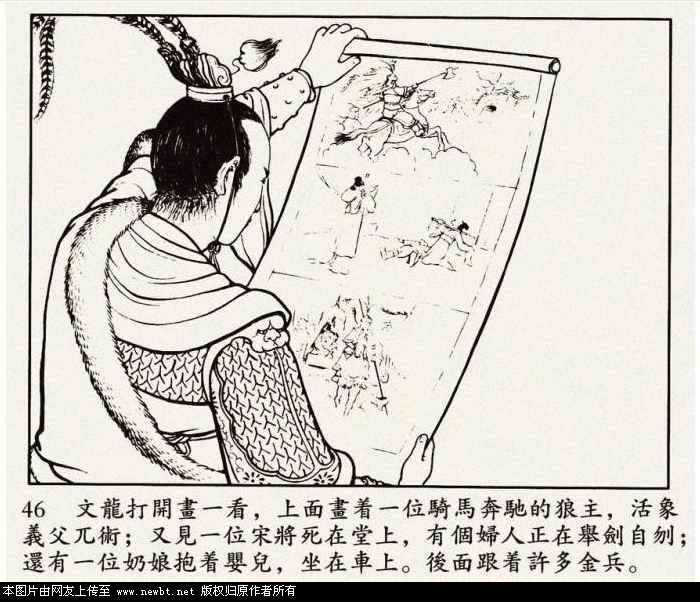 46 文龍打開畫一看，上面畫着一位騎馬奔馳的狼主，活象
義父兀術；又見一位宋將死在堂上，有個婦人正在舉劍自刎；
還有一位奶娘抱着嬰兒，坐在車上。後面跟着許多金兵。
本图片由网友上传至 www.newbt.net 版权归原作者所有